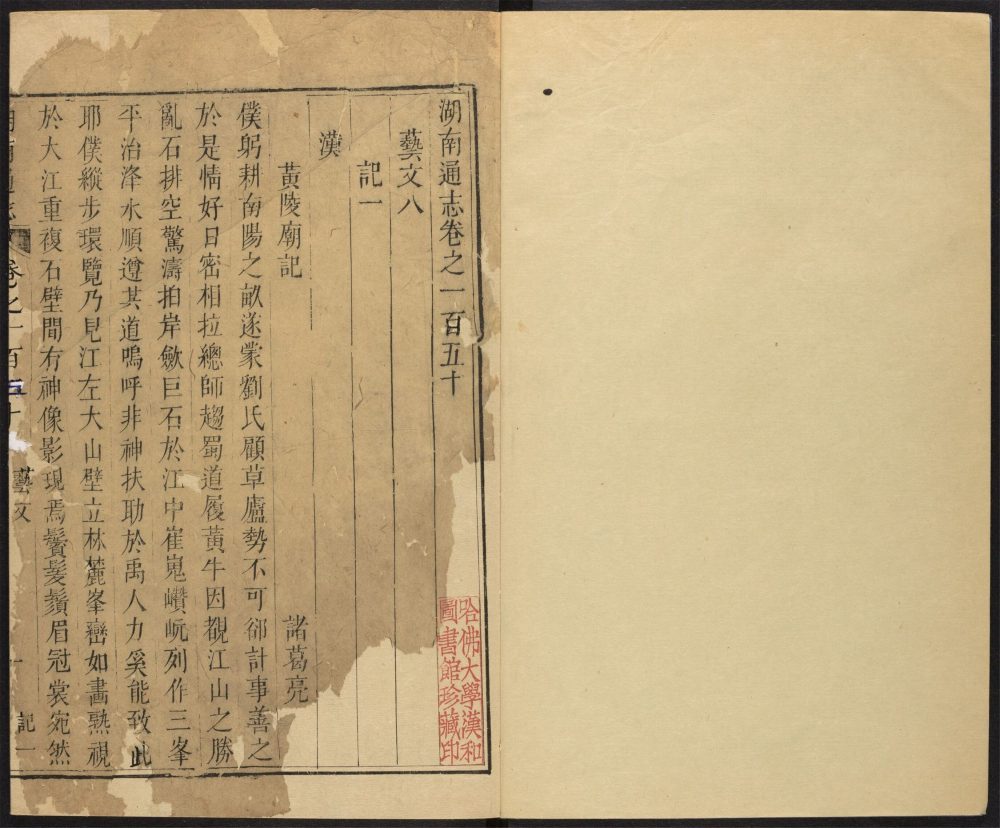 湖南通志卷之一百五十
藝文八
記一
漢
黃陵廟記 諸葛亮
僕躬耕南陽之畝遂蒙劉氏顧草廬勢不可卻計事善之
於是情好日密相拉總師趨蜀道履黃牛因覩江山之勝
亂石排空驚濤拍岸歛巨石於江中崔嵬巑岏列作三峯
平治洚水順遵其道嗚呼非神扶助於禹人力奚能致此
耶僕縱步環覽乃見江左大山壁立林麓峯巒如畫熟視
於大江重複石壁間有神像影現焉鬢髮鬚眉冠裳宛然
湖南通志 卷之一百五十 藝文 記一 一
哈佛大學漢和
圖書館珍藏印